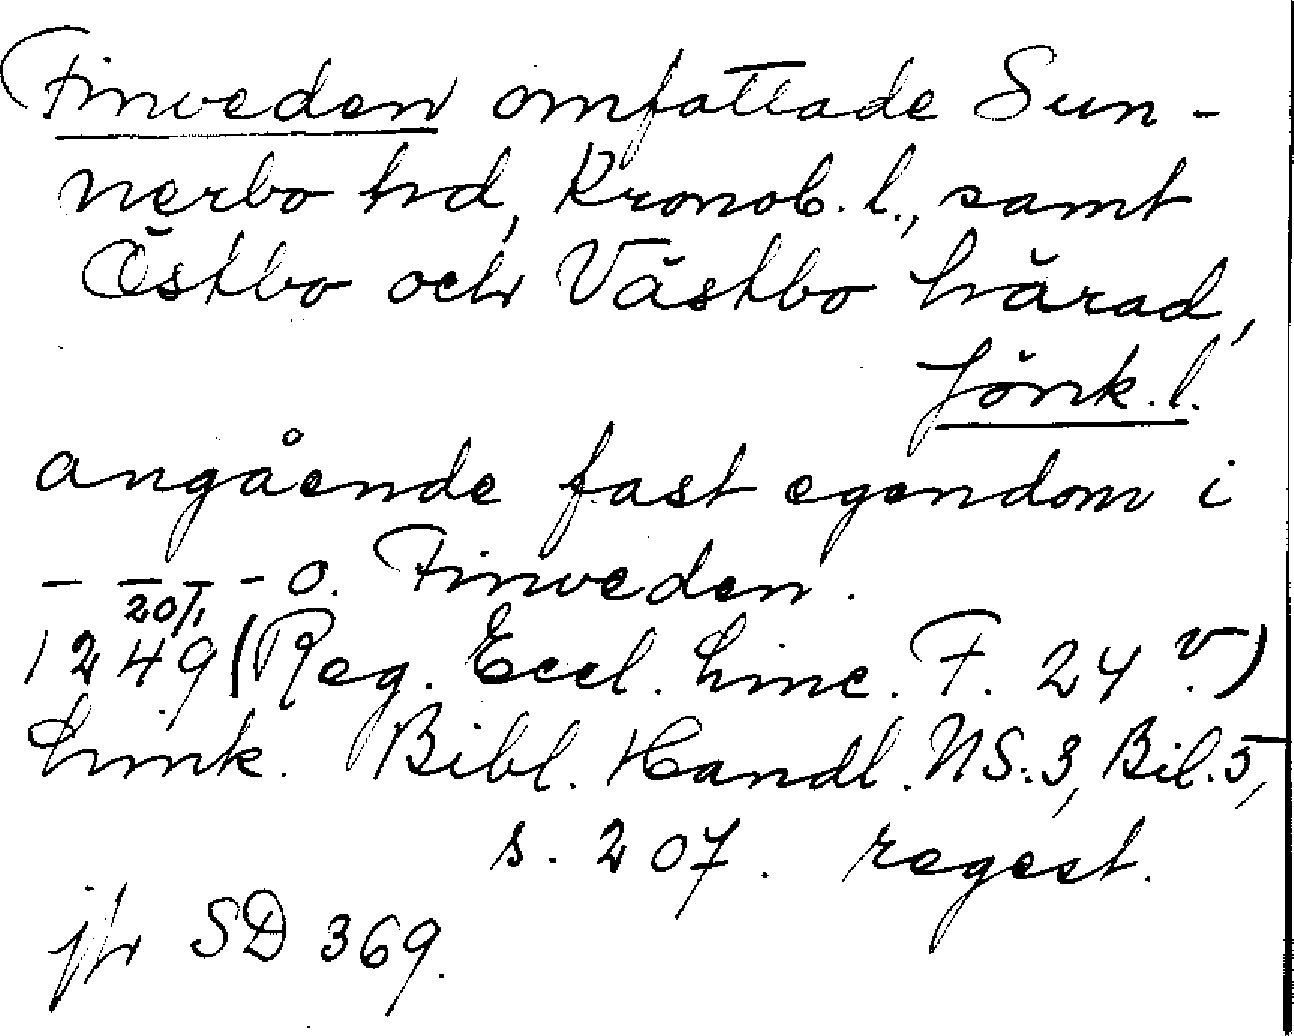 Finveden omfattade Sun-
nerbo hd, Kronob. l., samt
Östbo och Västbo härad,
Jönk. l.
angående fast egendom i
- - - - o. Finveden.
20/1
1249 (Reg. Eccl. Linc. F. 24 v.)
Link. Bibl. Handl. NS. 3, Bil. 5,
s. 207. regest.
jfr SD 369.